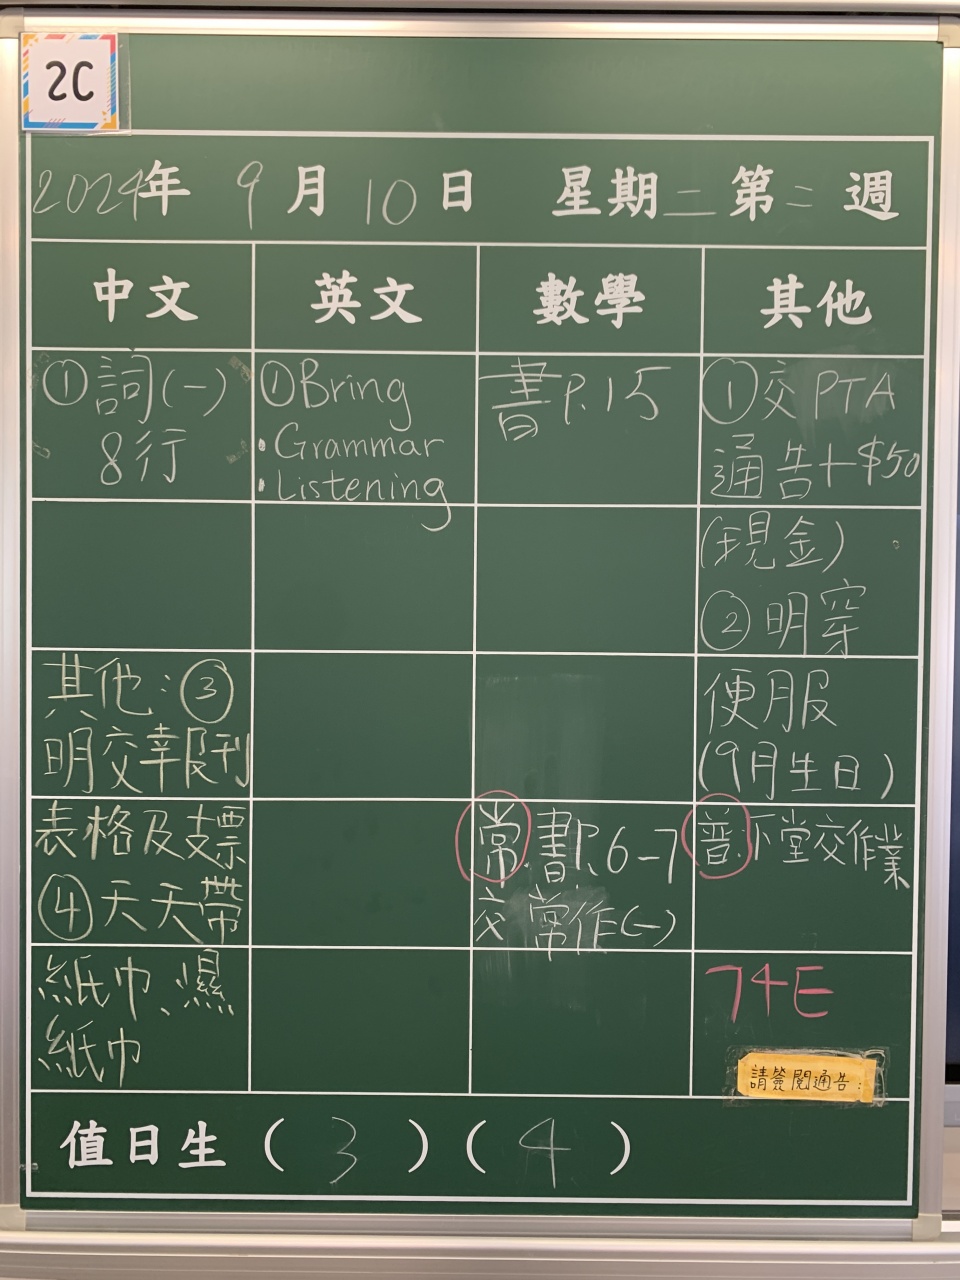 2C
2024年 9月10日 星期二 第二週
中文 英文 數學 其他
①詞(一)
8行
①Bring
·Grammar
·Listening
書P.15
①交PTA
通告+$50
(現金)。
②明穿
便服
(9月生日)
其他:③
明交報刊
表格及支票
④天天帶
紙巾、濕
紙巾
常.書P.6-7
交常作(一)
普.下堂交作業
74E
請簽閱通告:
值日生(3)(4)